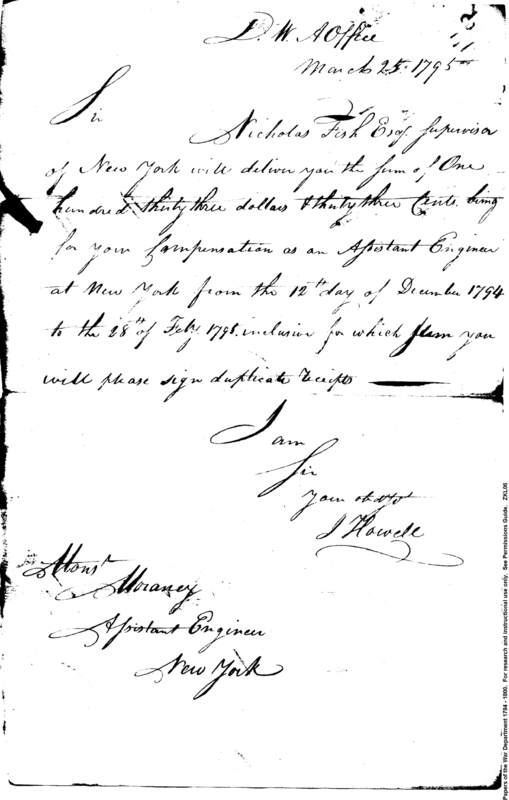 D. W. A Office
March 25. 1795
Sir
Nicholas Fish Esqr. Supervisor
of New York will deliver you the sum of One
hundred thirty three dollars & thirty three Cents. being
for your Compensation as an Assistant Engineer
at New York from the 12th day of December 1794
to the 28th of Feby. 1795. inclusive for which sum you
will please sign duplicate receipts
I am
Sir
your obdt
J Howell
Monsr
Assistant Engineer
New York
Papers of the War Department 1784 - 1800. For research and instructional use only. See Permissions Guide. ZKL06